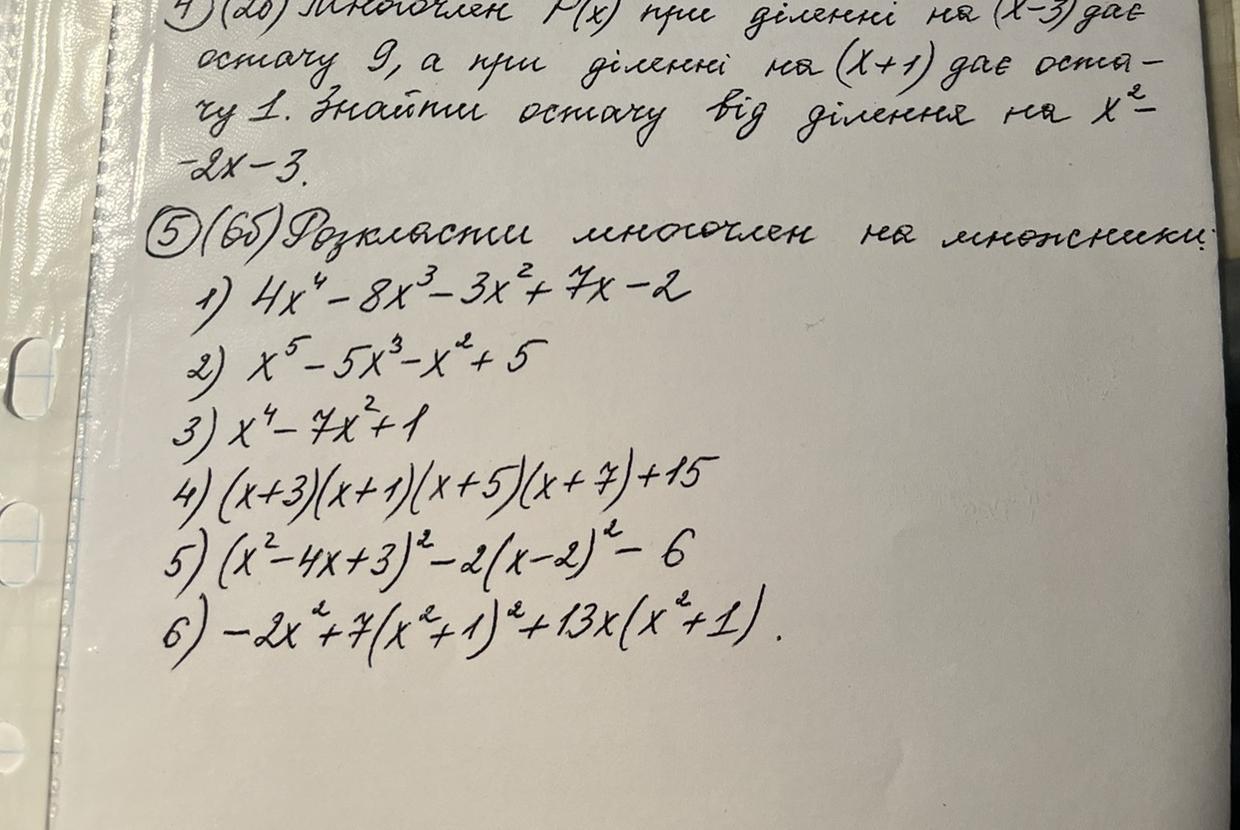 4) (2б) Многочлен P(x) при діленні на (x-3) дає
остачу 9, а при діленні на (x+1) дає оста-
чу 1. Знайти остачу від ділення на x²-
-2x-3.
5 (6б) Розкласти многочлен на множники:
1) 4x⁴ - 8x³ - 3x² + 7x - 2
2) x⁵ - 5x³ - x² + 5
3) x⁴ - 7x² + 1
4) (x+3)(x+1)(x+5)(x+7)+15
5) (x² - 4x + 3)² - 2(x-2)² - 6
6) -2x² + 7(x²+1)² + 13x(x²+1).